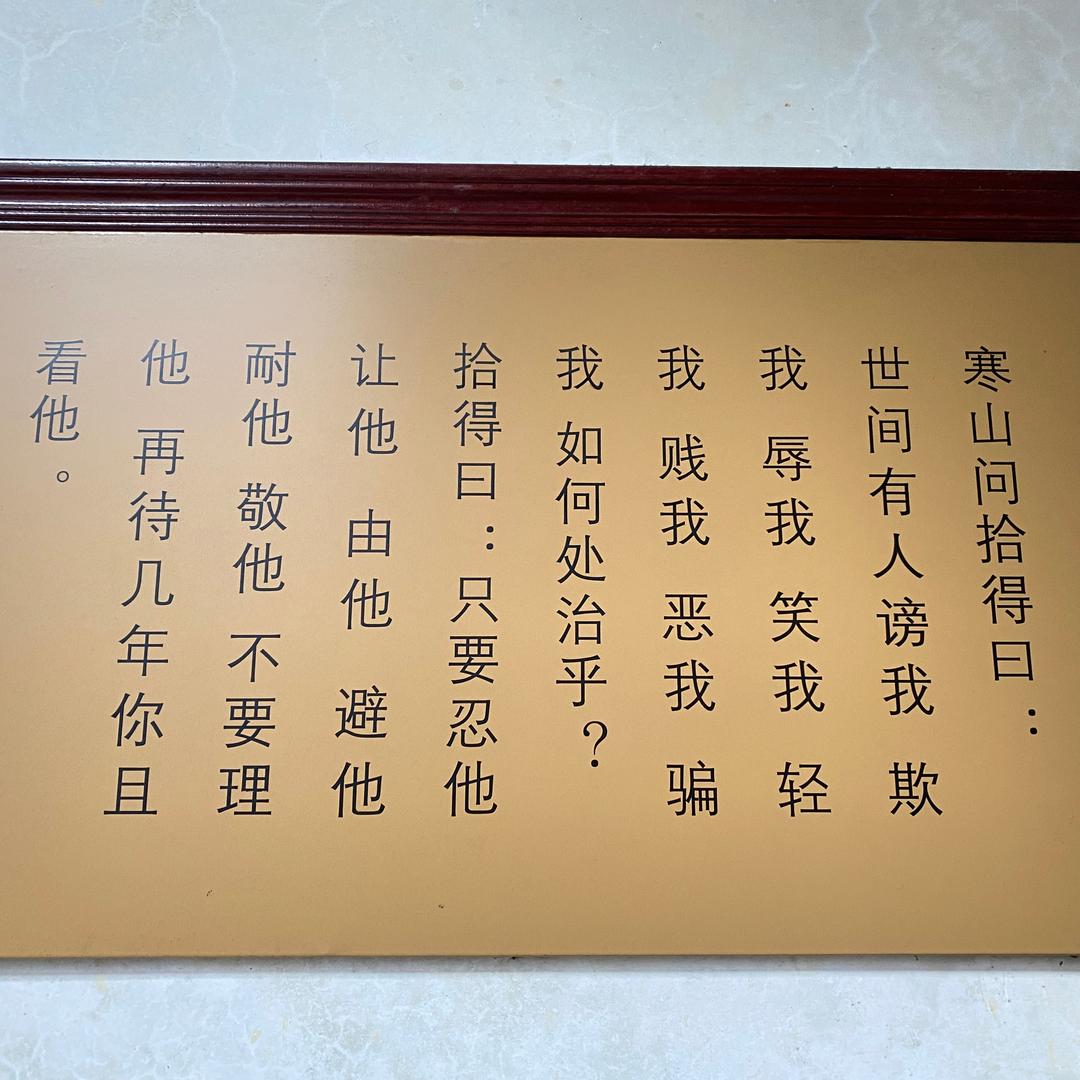 寒山问拾得曰：
世间有人谤我 欺
我 辱我 笑我 轻
我 贱我 恶我 骗
我 如何处治乎？
拾得曰：只要忍他
让他 由他 避他
耐他 敬他 不要理
他 再待几年你且
看他。